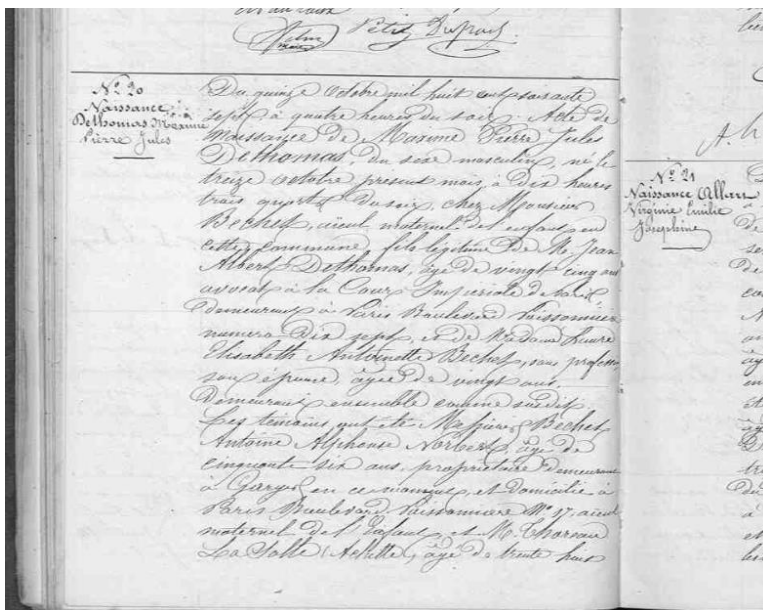 Petit Dupuis
N° 20
Naissance
Dethomas Maxime
Pierre Jules
Du quinze Octobre mil huit cent soixante
sept à quatre heures du soir. Acte de
Naissance de Maxime Pierre Jules
Dethomas, du sexe masculin, né le
treize octobre présent mois, à dix heures
trois quarts du soir, chez Monsieur
Bechet, aïeul maternel de l'enfant en
cette commune, fils légitime de M. Jean
Albert Dethomas, âgé de vingt cinq ans
avocat à la Cour Impériale de Paris
demeurant à Paris Boulevard Poissonnière
numéro dix sept, et de Madame Laure
Elisabeth Antoinette Bechet, sans profession
son épouse, âgée de vingt ans,
demeurant ensemble comme susdit.
Les témoins ont été Messieurs Bechet
Antoine Alphonse Norbert, âgé de
cinquante six ans, propriétaire demeurant
à Garges, en ce moment, et domicilié à
Paris Boulevard Poissonnière N° 17, aïeul
maternel de l'Enfant, et M. Thoreau
La Salle (Achille), âgé de trente huit
N° 21
Naissance Allart
Virginie Emilie
Joséphine